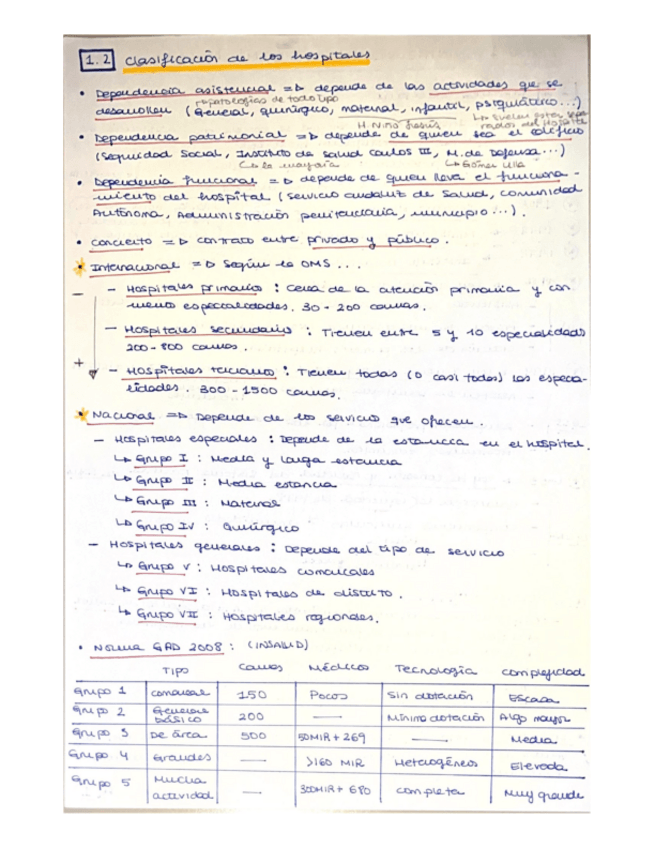 1.2 Clasificación de los hospitales
• Dependencia asistencial => depende de las actividades que se
↳ patologías de todo tipo
desarrollen (General, quirúrgico, maternal, infantil, psiquiátrico...)
H. Niño Jesús ↳ suelen estar separados del Hospital
• Dependencia patrimonial => depende de quien sea el edificio
(Seguridad Social, Instituto de Salud Carlos III, M. de Defensa...)
↳ la mayoría ↳ Gómez Ulla
• Dependencia funcional => depende de quien lleva el funciona-
miento del hospital (servicio andaluz de Salud, comunidad
Autónoma, Administración penitenciaria, municipio...).
• Concierto => contrato entre privado y público.
• Internacional => Según la OMS...
- – Hospitales primarios: Cerca de la atención primaria y con
menos especialidades. 30-200 camas.
– Hospitales secundarios: Tienen entre 5 y 10 especialidades
200-800 camas.
+ – Hospitales terciarios: Tienen todas (o casi todas) las especia-
lidades. 300-1500 camas.
• Nacional => Depende de los servicios que ofrecen.
– Hospitales especiales: Depende de la estancia en el hospital.
↳ Grupo I: Media y larga estancia
↳ Grupo II: Media estancia
↳ Grupo III: Maternas
↳ Grupo IV: Quirúrgico
– Hospitales generales: Depende del tipo de servicio
↳ Grupo V: Hospitales comarcales
↳ Grupo VI: Hospitales de distrito.
↳ Grupo VII: Hospitales regionales.
• Norma GRD 2008: (INSALUD)
Tipo Camas Médicos Tecnología Complejidad
Grupo 1 comarcal 150 Pocos Sin dotación Escasa
Grupo 2 General básico 200 — Mínima dotación Algo mayor
Grupo 3 De área 500 50MIR + 269 — Media
Grupo 4 Grandes — >160 MIR Heterogéneos Elevada
Grupo 5 Mucha actividad — 300MIR + 680 completa Muy grande